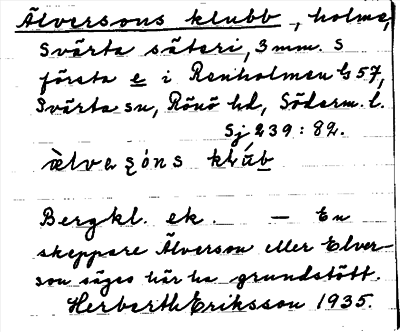 Älversons klubb, holme,
Svärta säteri, 3 mm. S
första e i Renholmen G 57,
Svärta sn, Rönö hd, Söderm. l.
Sj 239 : 82.
Bergkl. ek. — En
skeppare Älverson eller Elver-
son säges här ha grundstött.
Herbert Eriksson 1935.